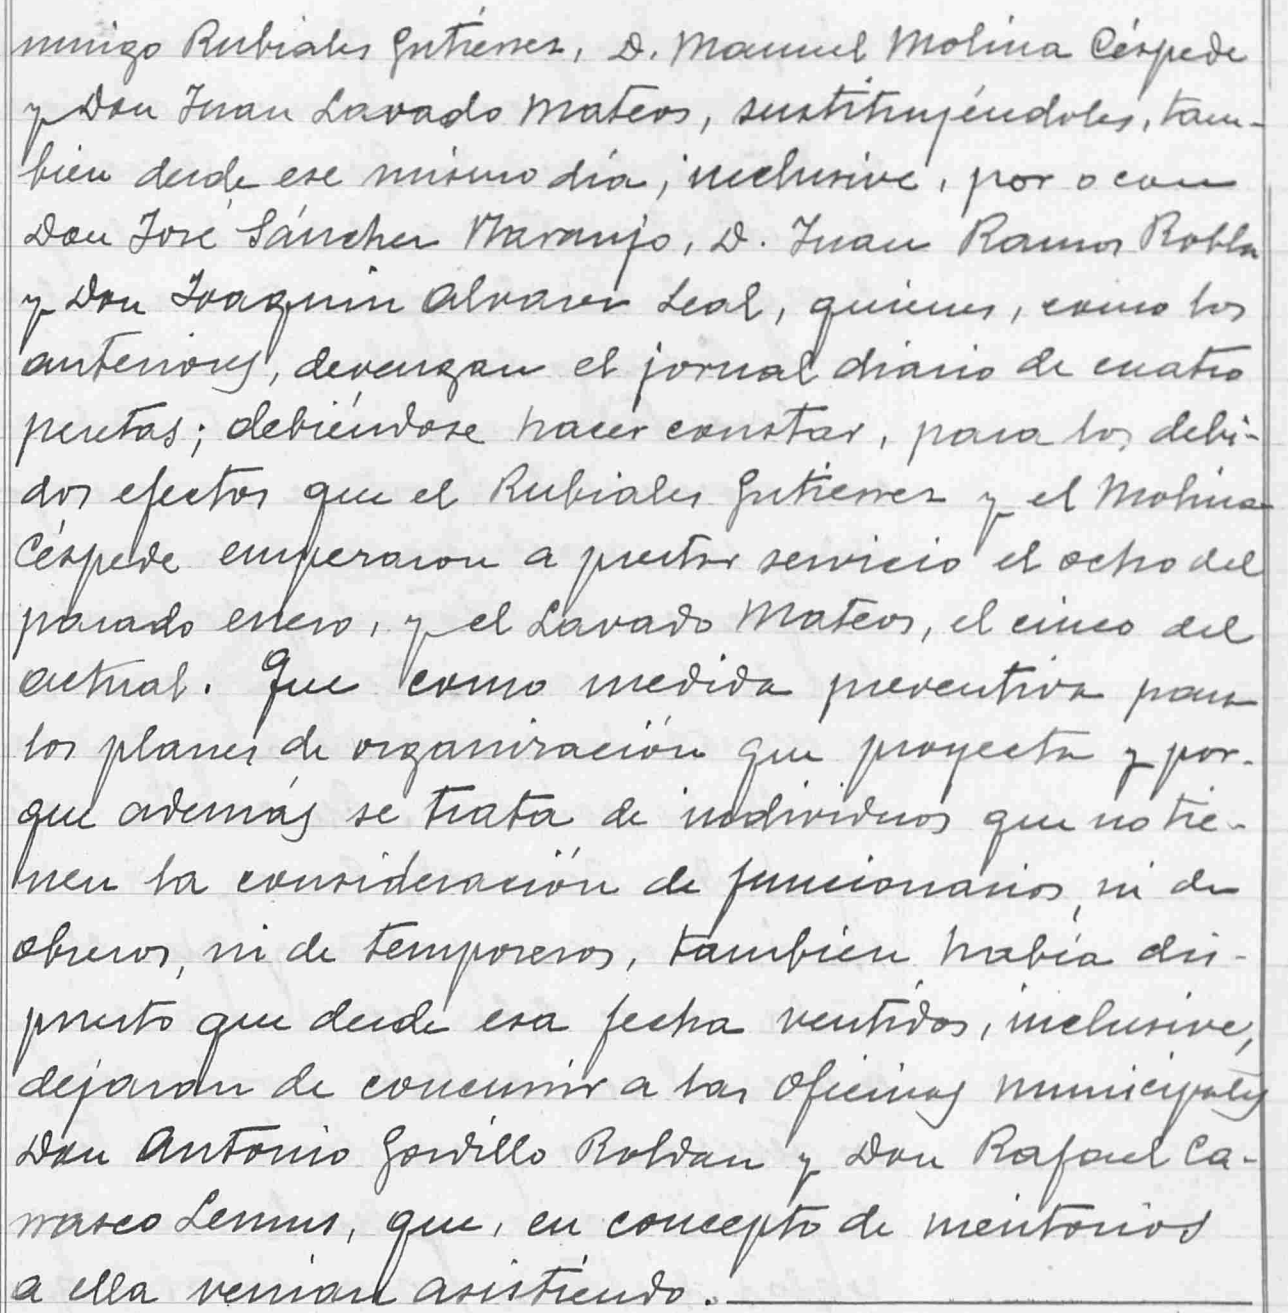 mingo Rubiales Gutiérrez, D. Manuel Molina Céspede
y Don Juan Lavado Mateos, sustituyéndoles, tam-
bien desde ese mismo día, inclusive, por
Don José Sánchez Naranjo, D. Juan Ramos Robles
y Don Joaquin Alvarez Leal, quienes, como los
anteriores, devengan el jornal diario de cuatro
pesetas; debiéndose hacer constar, para los debi-
dos efectos que el Rubiales Gutierrez y el Molina
Céspede empezaron a prestar servicio el ocho del
pasado enero, y el Lavado Mateos, el cinco del
actual. Que como medida preventiva para
los planes de organización que proyecta y por-
que además se trata de individuos que no tie-
nen la consideración de funcionarios, ni de
obreros, ni de temporeros, también había dis-
puesto que desde esa fecha ventidos, inclusive,
dejaran de concurrir a las oficinas municipales
Don Antonio Gordillo Roldan y Don Rafael Ca-
rrasco Lemus, que, en concepto de meritorios
a ella venian asistiendo.